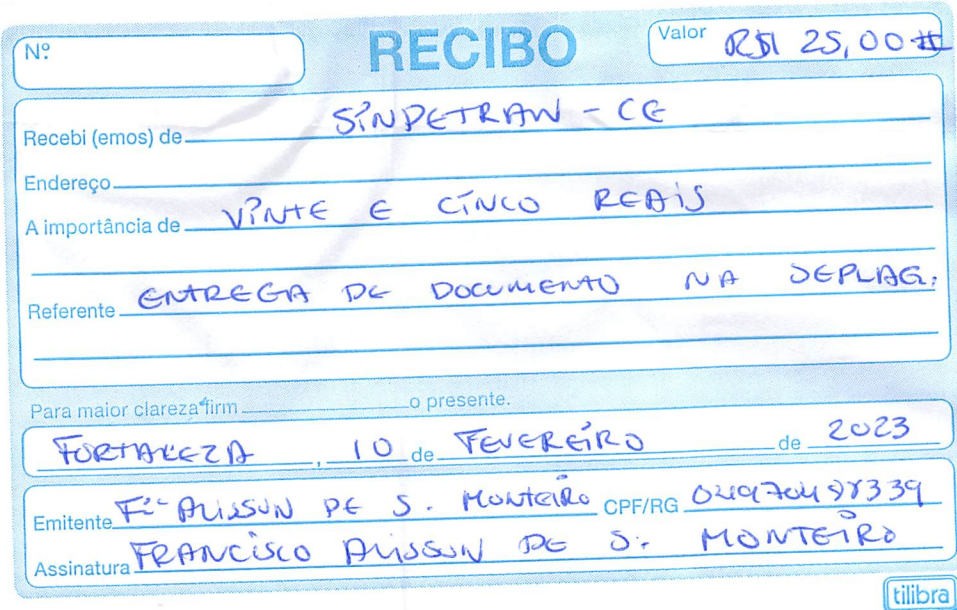 Nº RECIBO Valor R$ 25,00
Recebi (emos) de SINDETRAN - CE
Endereço
A importância de VINTE E CINCO REAIS
Referente ENTREGA DE DOCUMENTO NA SEPLAG.
Para maior clareza firm o presente.
FORTALEZA, 10 de FEVEREIRO de 2023
Emitente Fco ALISSON DE S. MONTEIRO CPF/RG
Assinatura FRANCISCO ALISSON DE S. MONTEIRO
tilibra